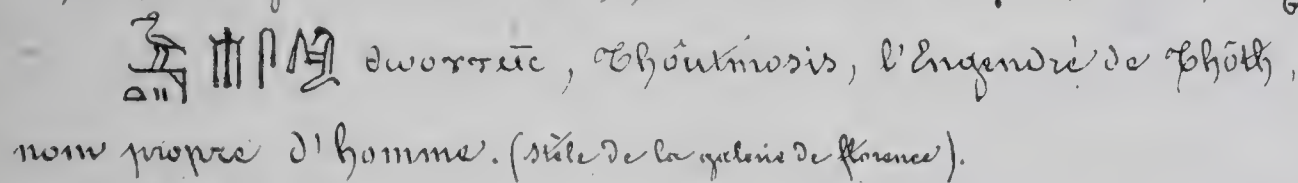 𓅝𓏏𓏭𓄟𓋴 ⲑⲱⲟⲩⲧⲙ̄ⲥ, Thôutmosis, l'Engendré de Thôth,
nom propre d'homme. (stèle de la galerie de florence).